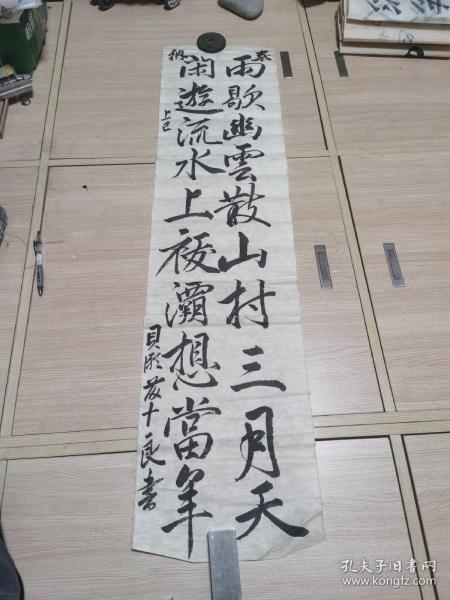 奉納
雨歇幽雲散山村三月天
閑遊流水上祓灞想當年
上巳
貝影茂十良書
孔夫子旧书网
www.kongfz.com